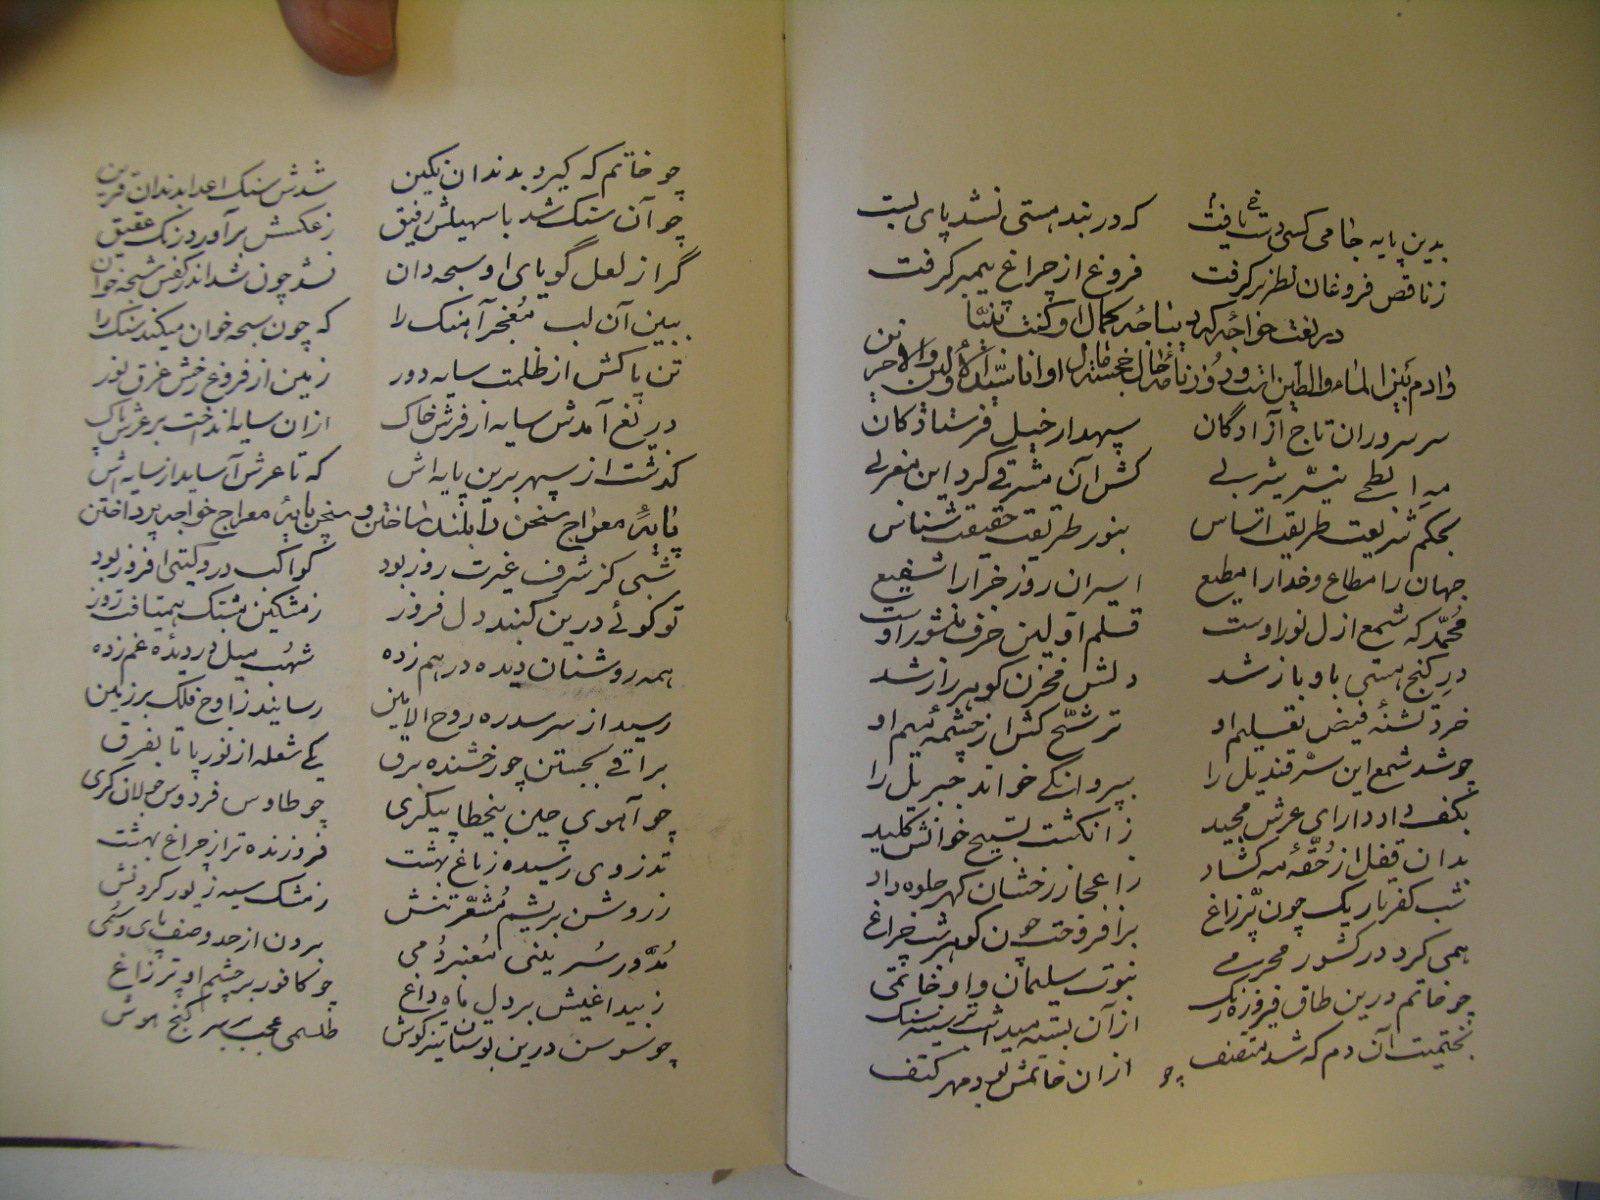 بدین پایه جامی کسی دست یافت که در بند هستی نشد پای بست
زناقص فروغان نظر برگرفت فروغ از چراغ پیمبر گرفت
در نعت خواجه که دیباچه کمال او کنت نبیا
وادم بین الماء والطین است و او انا سید الاولین والاخرین
سر سروران تاج آزادگان سپهدار خیل فرستادگان
مه ابطحی نیّر یثربی کش آن مشرقی کرد این مغربی
بحکم شریعت طریقت اساس بنور طریقت حقیقت شناس
جهان را مطاع و خدا را مطیع اسیران روز جزا را شفیع
محمّد که شمع ازل نور اوست قلم اولین حرف منشور اوست
در گنج هستی باو باز شد دلش مخزن گوهر راز شد
خرد تشنهٔ فیض تعلیم او ترشّح کش از چشمهٔ میم او
چو شد شمع این سبز قندیل را بپروانگی خواند جبریل را
بکف داد دارای عرش مجید ز انگشت تسبیح خوانش کلید
بدان قفل از حقّهٔ مه گشاد ز اعجاز رخشان گهر جلوه داد
شب کفر تاریک چون پرّ زاغ برافروخت چون گوهر شب چراغ
همی کرد در کشور محرمی نبوت سلیمان و او خاتمی
چو خاتم درین طاق فیروزه رنگ از آن بسته میداشت بر سینه سنگ
بختمیت آن دم که شد متصف از ان خاتمش بود مهر کتف
چو
چو خاتم که گیرد بدندان نگین شدش سنگ اعدا بدندان قرین
چو آن سنگ شد با سهیلش رفیق ز عکسش برآورد رنگ عقیق
گر از لعل گویای او سبحه دان نشد چون شد اندر کفش سبحه خوان
ببین آن لب نغز آهنگ را که چون سبحه خوان میکند سنگ را
تن پاکش از ظلمت سایه دور زمین از فروغ رخش غرق نور
دریغ آمدش سایه از فرش خاک ازان سایه انداخت بر عرش پاک
گذشت از سپهر برین پایه اش که تا عرش آساید از سایه اش
پایهٔ معراج سخن را بلند ساختن و سخن پایهٔ معراج خواجه پرداختن
شبی کز شرف غیرت روز بود کواکب درو گیتی افروز بود
تو گوئے درین گنبد دل فروز ز مشکین مشبک همیتافت روز
همه روشنان دیده در هم زده شهب میل در دیدهٔ غم زده
رسید از سر سدره روح الامین رسانید ز اوج فلک بر زمین
براقی بجستن چو رخشنده برق یکے شعله از نور پا تا بفرق
چو آهوی چین بیخطا پیکری چو طاوس فردوس جولان گری
تذروی رسیده ز باغ بهشت فروزنده تر از چراغ بهشت
ز روشن بریشم مُشعّر تنش ز مشک سیه زیور گردنش
مُدوّر سُرینی مُعنبر دُمی برون از حد وصف پای و سُمی
ز بیداغیش بر دل ماه داغ چو کافور بر چشم او پرّ زاغ
چو سوسن درین بوستان تیز گوش طلسمی عجب بر سر گنج هوش